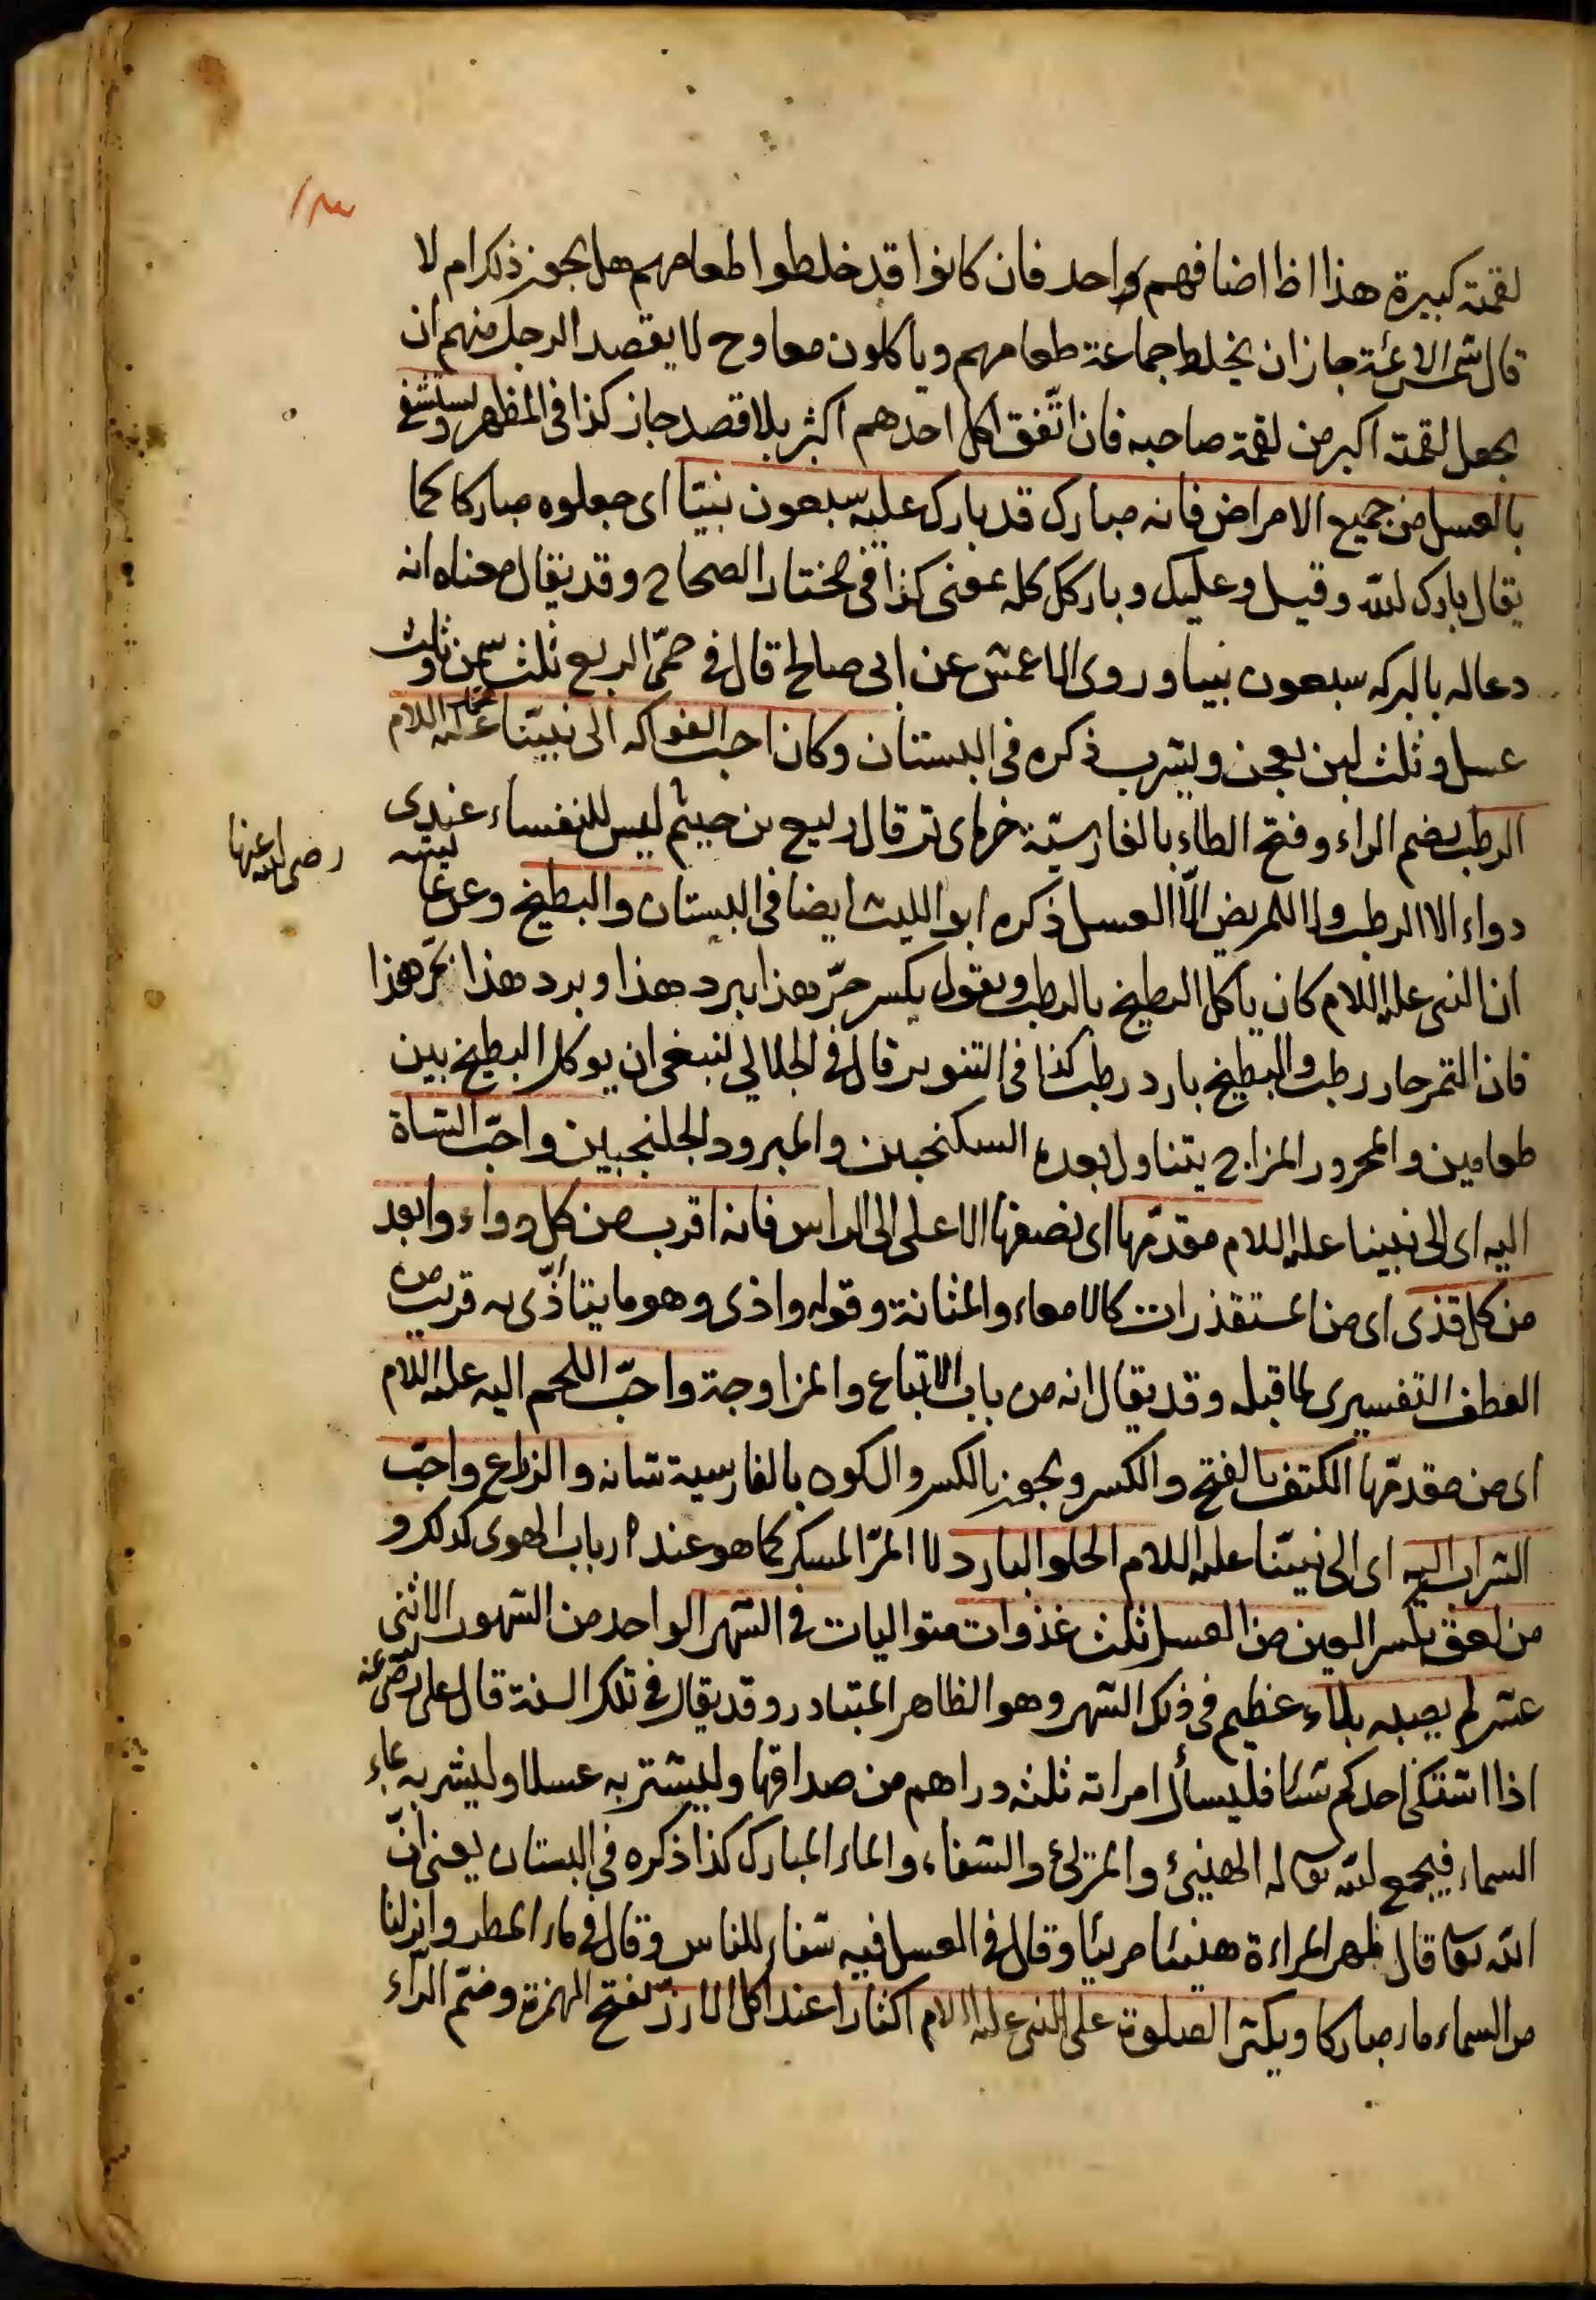 لقمته كبيرة هذا اذا اضافهم واحد فان كانوا قد خلطوا طعامهم هل يجوز ذلك ام لا
قال شمس الائمة جاز ان يخلط جماعة طعامهم وياكلون معا وح لا يقصد الرجل منهم ان
يجعل لقمته اكبر من لقمة صاحبه فان اتّفق اكل احدهم اكثر بلا قصد جاز كذا فى المظهر ويستشفى
بالعسل من جميع الامراض فانه مبارك قد بارك عليه سبعون نبيّا اى جعلوه مباركا كما
يقال بارك لله وقيل وعليك وبارك كله بمعنى كذا فى مختار الصحاح وقد يقال معناه انه
دعا له بالبركه سبعون نبيا وروى الاعمش عن ابى صالح قال فى حمّى الربع ثلث سمن وثلث
عسل وثلث لبن يعجن ويشرب ذكره فى البستان وكان احب الفواكه الى نبيّنا عليه السلام
الرطب بضم الراء وفتح الطاء بالفارسيّة خرماى تر قال ربيع بن خيثم ليس للنفساء عندى
دواء الا الرطب ولا للمريض الّا العسل ذكره ابو الليث ايضا فى البستان والبطيخ وعن عايشه
رضى الله عنها
ان النبى عليه السلام كان ياكل البطيخ بالرطب ويقول يكسر حرّ هذا ببرد هذا وبرد هذا بحرّ هذا
فان التمر حار رطب والبطيخ بارد رطب كذا فى التنوير قال فى الجلالى ينبغى ان يوكل البطيخ بين
طعامين والمحرور المزاج يتناول بعده السكنجبين والمبرود الجلنجبين واحبّ الشاة
اليه اى الى نبينا عليه السلام مقدّمها اى نصفها الاعلى الى الراس فانه اقرب من كل دواء وابعد
من كل قذى اى من المستقذرات كالامعاء والمثانة وقوله واذى وهو ما يتأذّى به قريب من
العطف التفسيرى لما قبله وقد يقال انه من باب الاتباع والمزاوجة واحبّ اللحم اليه عليه السلام
اى من مقدمّها الكتف بالفتح والكسر ويجوز بالكسر والسكون بالفارسية شانه والزراع واحبّ
الشراب اليه اى الى نبيّنا عليه السلام الحلو البارد لا المرّ المسكر كما هو عند ارباب الهوى كذلك و
من لعق بكسر العين من العسل ثلث غذوات متواليات فى الشهر الواحد من الشهور الاثنى
عشر لم يصبه بلاء عظيم فى ذلك الشهر وهو الظاهر المتبادر وقد يقال فى تلك السنة قال على رضى الله عنه
اذا اشتكى احدكم شيئا فليسأل امراته ثلثه دراهم من صداقها وليشتر به عسلا وليشربه بماء
السماء فيجمع لله تعالى له الهنيئ والمريئ والشفاء والماء المبارك كذا ذكره فى البستان يعنى انّ
الله تعالى قال لمهر المراءة هنيئا مريئا وقال فى العسل فيه شفاء للناس وقال فى ماء المطر وانزلنا
من السماء ماء مباركا ويكثر الصلوة على النبى عليه السلام اكثارا عند اكل الارزّ بفتح الهمزة وضمّ الرآء